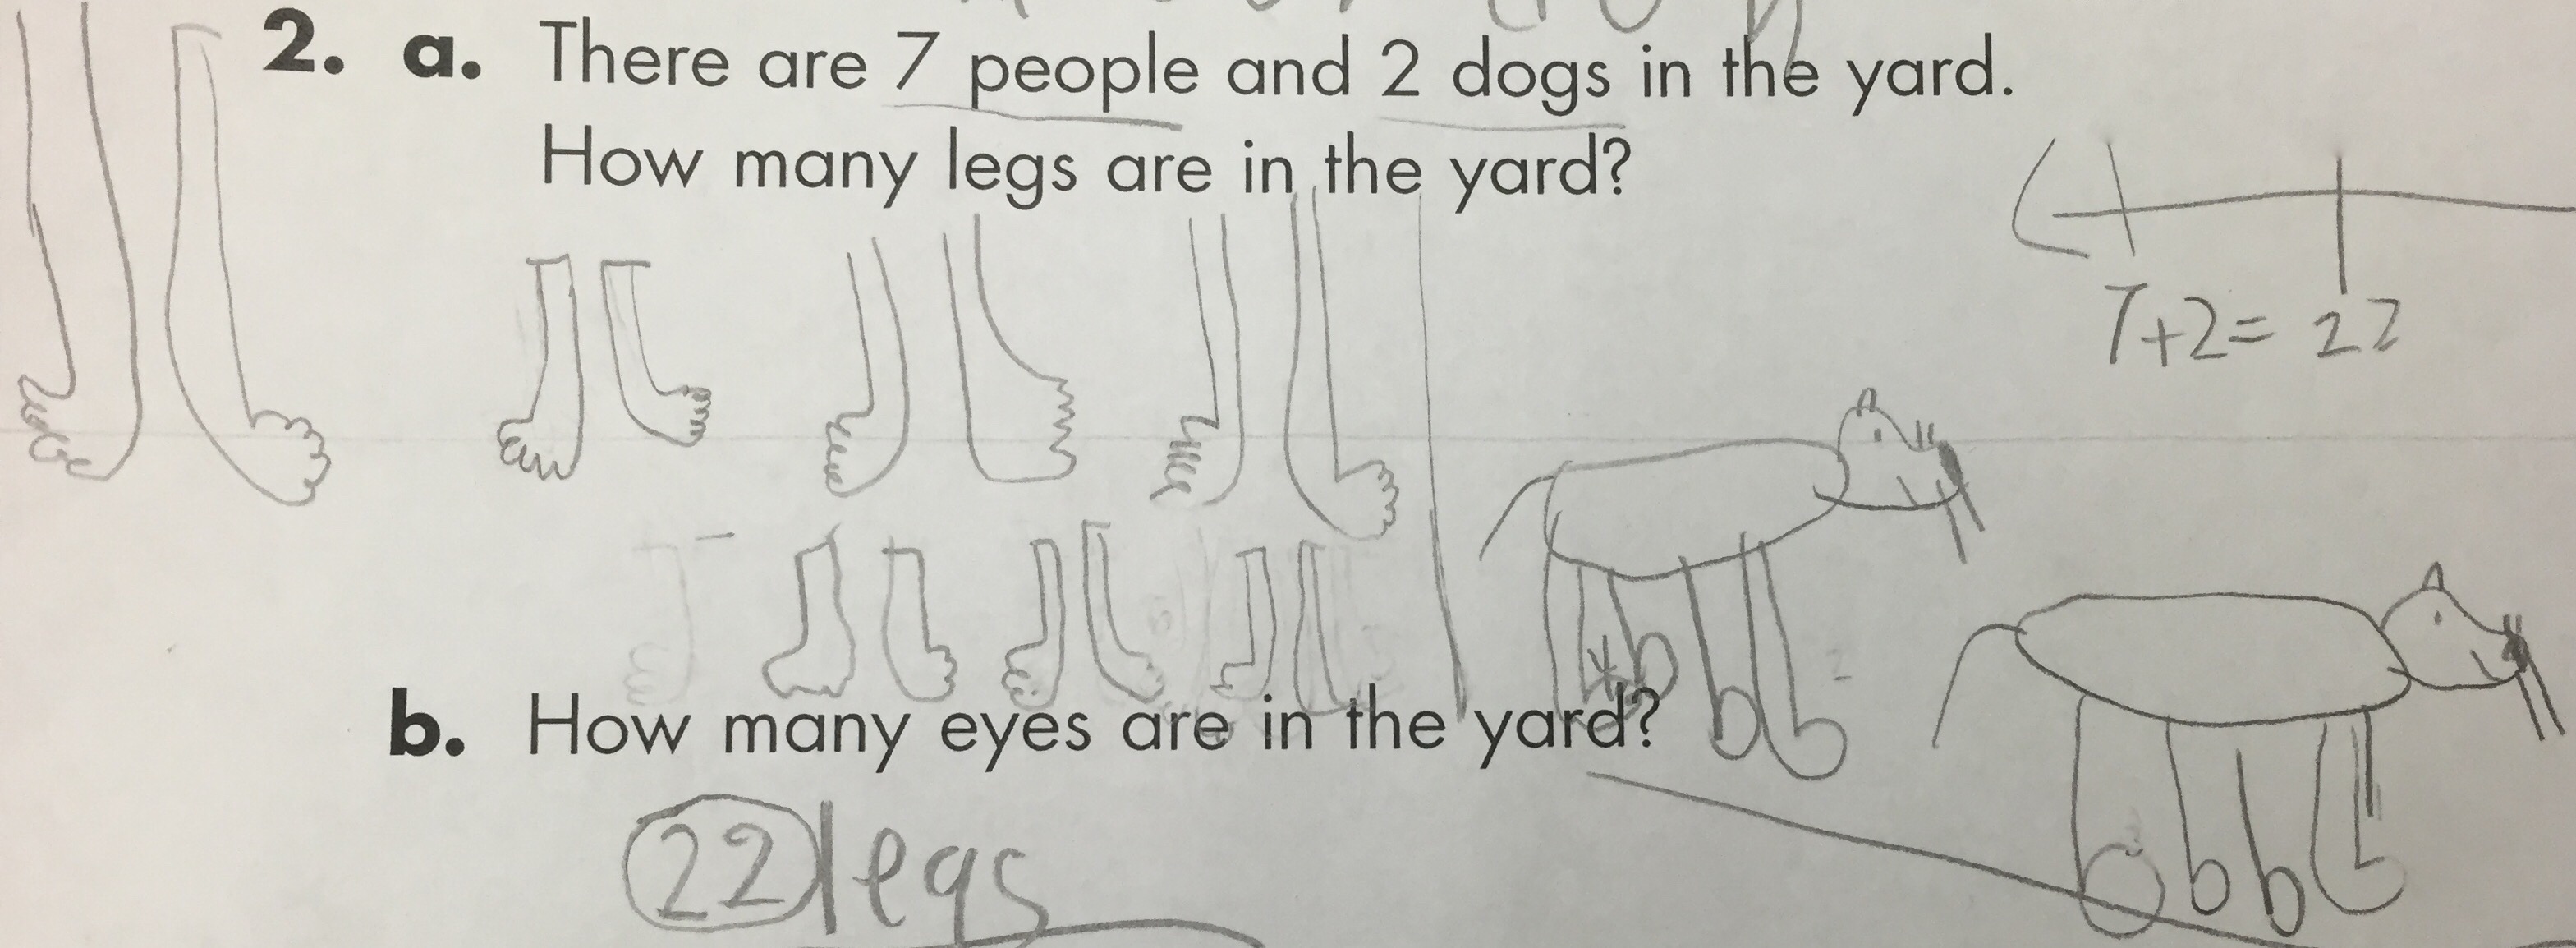 2. a. There are 7 people and 2 dogs in the yard.
How many legs are in the yard?
7+2= 22
b. How many eyes are in the yard?
22 legs